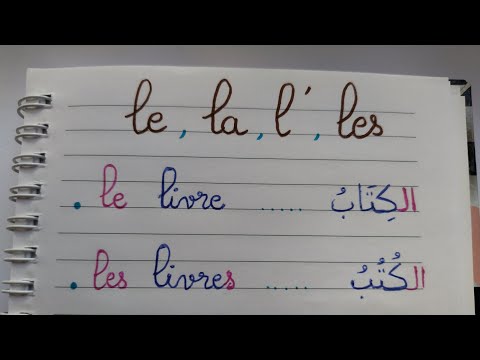 le, la, l', les
. le livre ..... الكِتَابُ
. les livres ..... الكُتُبُ